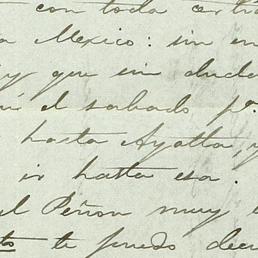 con toda
a Mexico: sin en
y que sin duda
el sabado pº.
hasta Ayotla, y
ir hasta esa.
el Peñon muy
te puedo decir